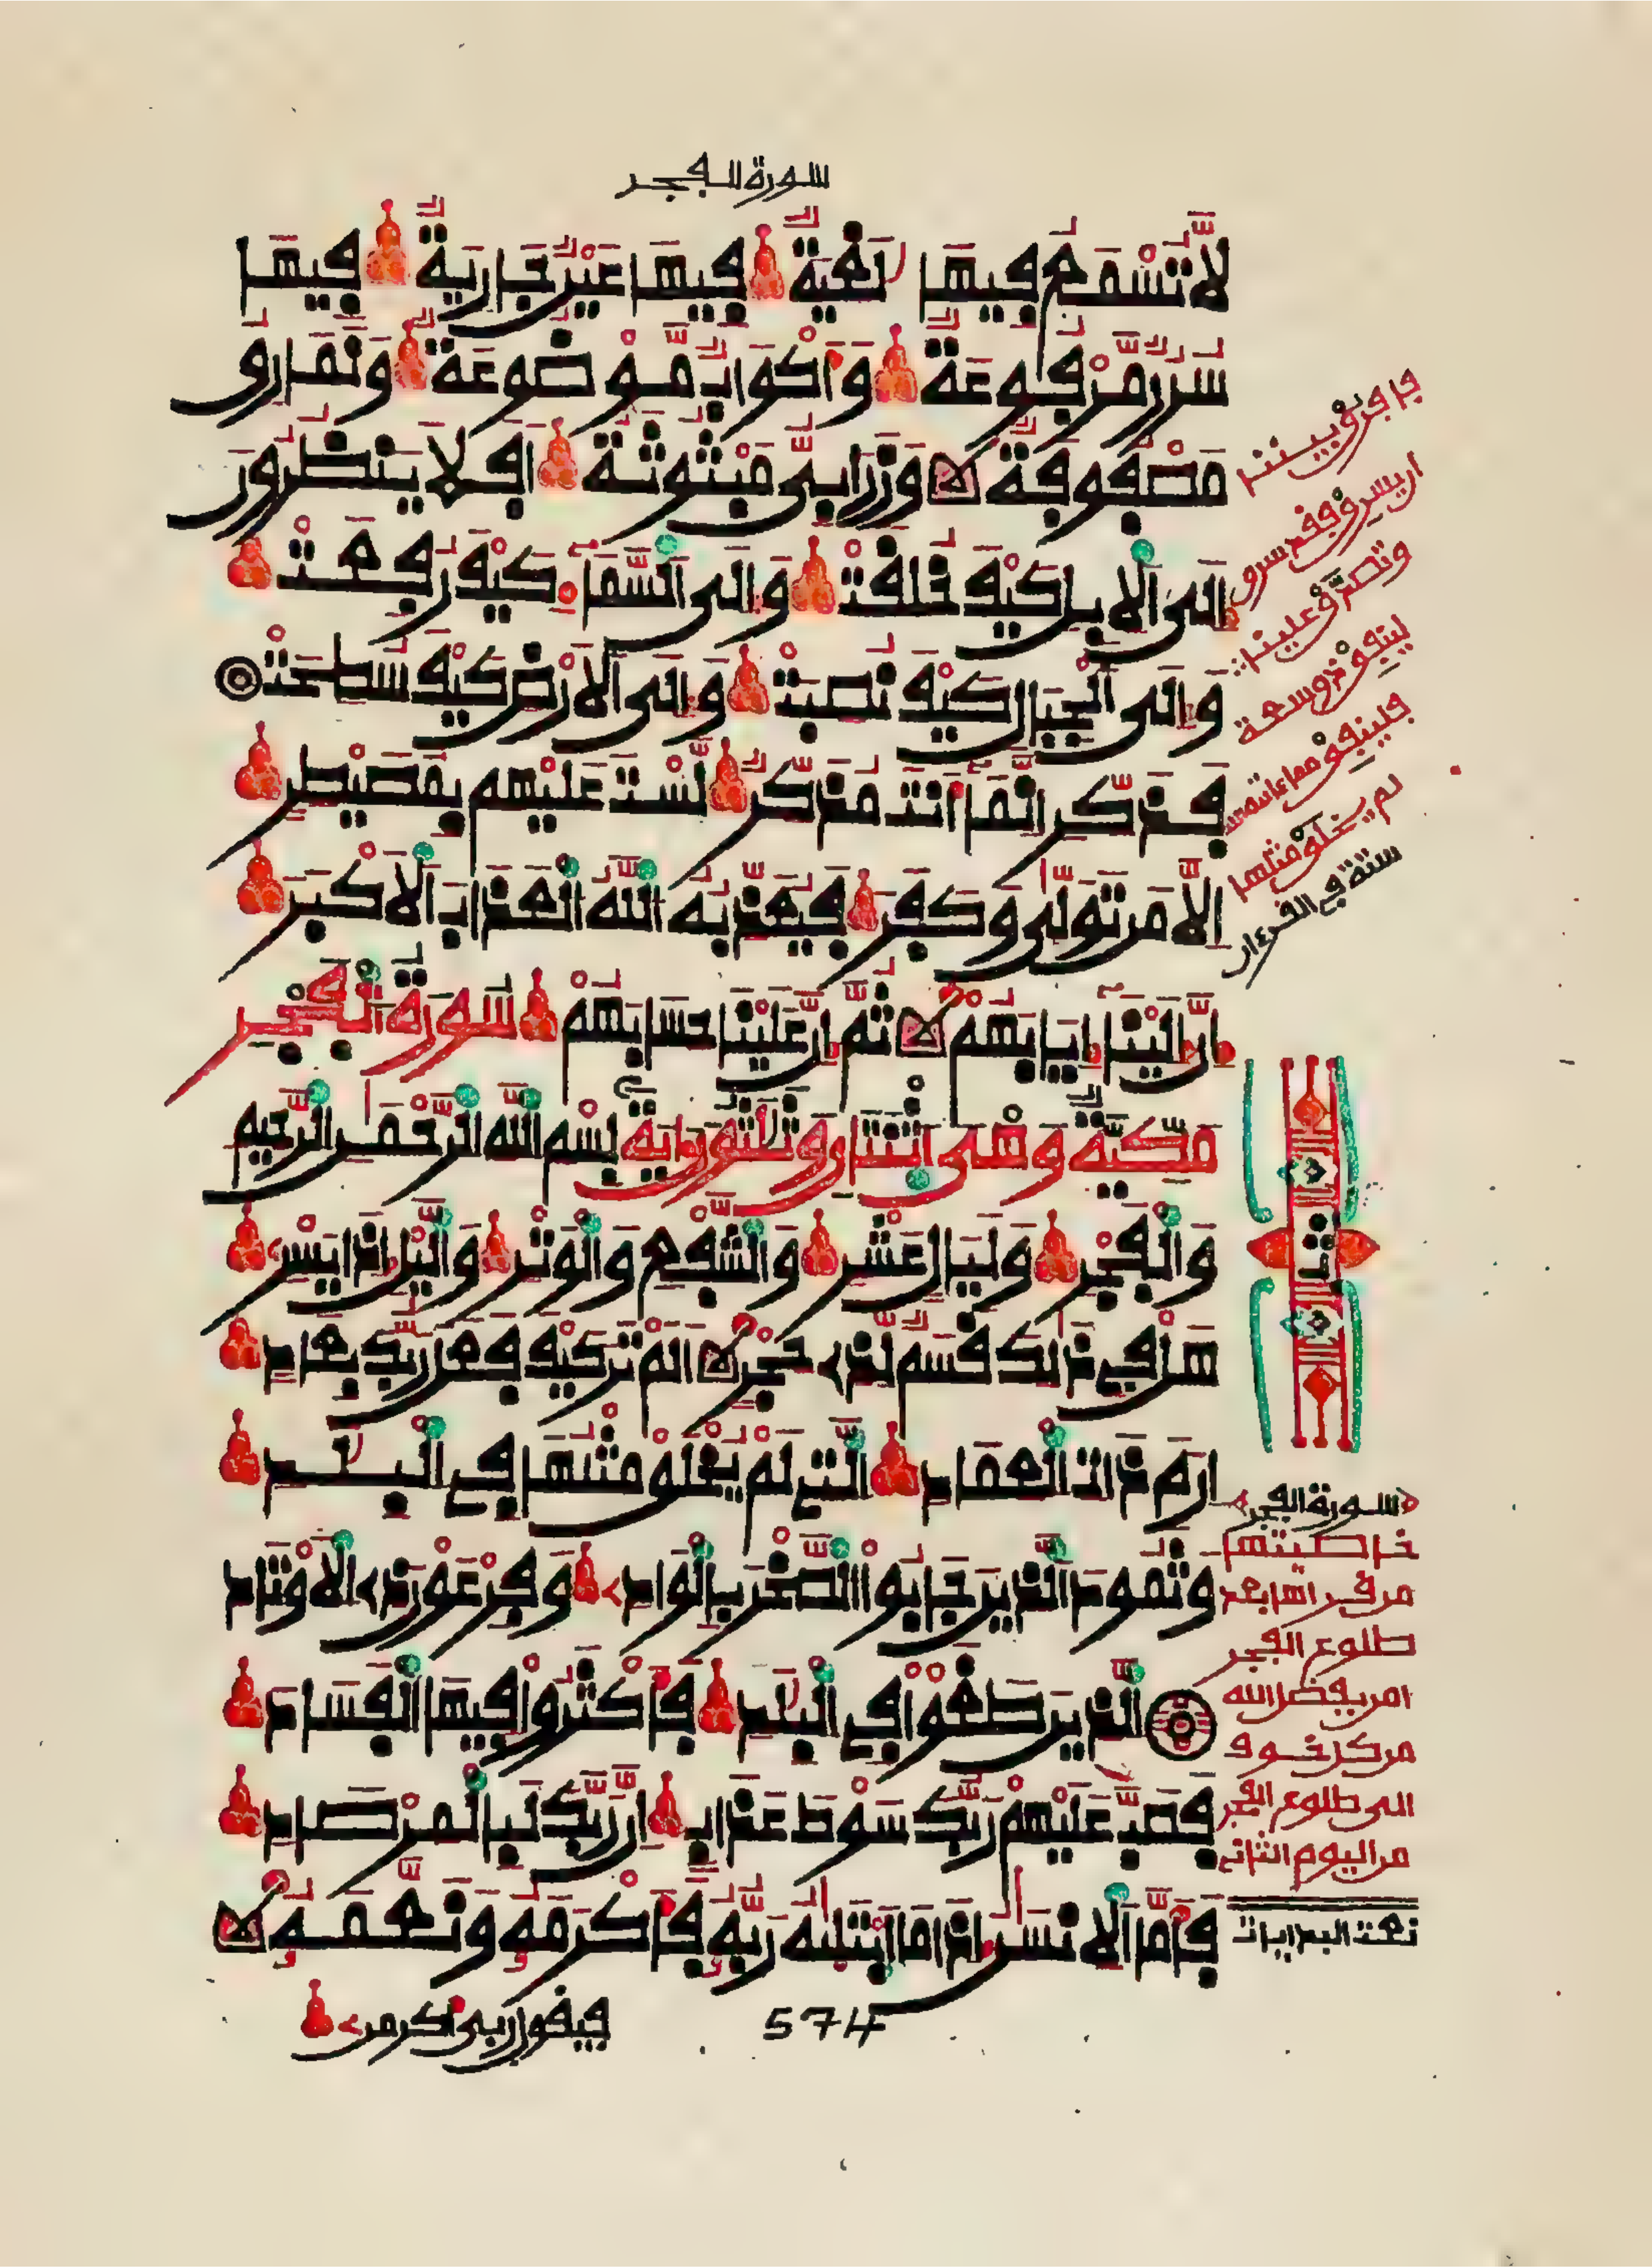 سورة الفجر
لا تسمع فيها لغية فيها عين جارية فيها
سرر مرفوعة وأكواب موضوعة ونمارق
مصفوفة وزرابي مبثوثة افلا ينظرون
الى الابل كيف خلقت والى السماء كيف رفعت
والى الجبال كيف نصبت والى الارض كيف سطحت
فذكر انما انت مذكر لست عليهم بمصيطر
الا من تولى وكفر فيعذبه الله العذاب الاكبر
ان الينا إيابهم ثم ان علينا حسابهم سورة الفجر
مكية وهي اثنتان وثلثون ءاية بسم الله الرحمن الرحيم
والفجر وليال عشر والشفع والوتر واليل اذا يسر
هل في ذلك قسم لذي حجر الم تر كيف فعل ربك بعاد
ارم ذات العماد التي لم يخلق مثلها في البلد
وثمود الذين جابوا الصخر بالواد وفرعون ذي الاوتاد
الذين طغوا في البلد فأكثروا فيها الفساد
فصب عليهم ربك سوط عذاب ان ربك لبالمرصاد
فأما الانسن اذا ما ابتليه ربه فأكرمه ونعمه
فيقول ربي أكرمن
574
فافرق بيننا
ان يسرق فقد سرق
وتصدق علينا
لينفق ذو سعة
فلينفق مما ءاتيه الله
لم يخلق مثلها
ستة في القرءان
ثمن
سورة الفجر
خاصيتها
من قراها بعد
طلوع الفجر
امن بفضل الله
من كل خوف
الى طلوع الفجر
من اليوم الثاني
نعت البدايات